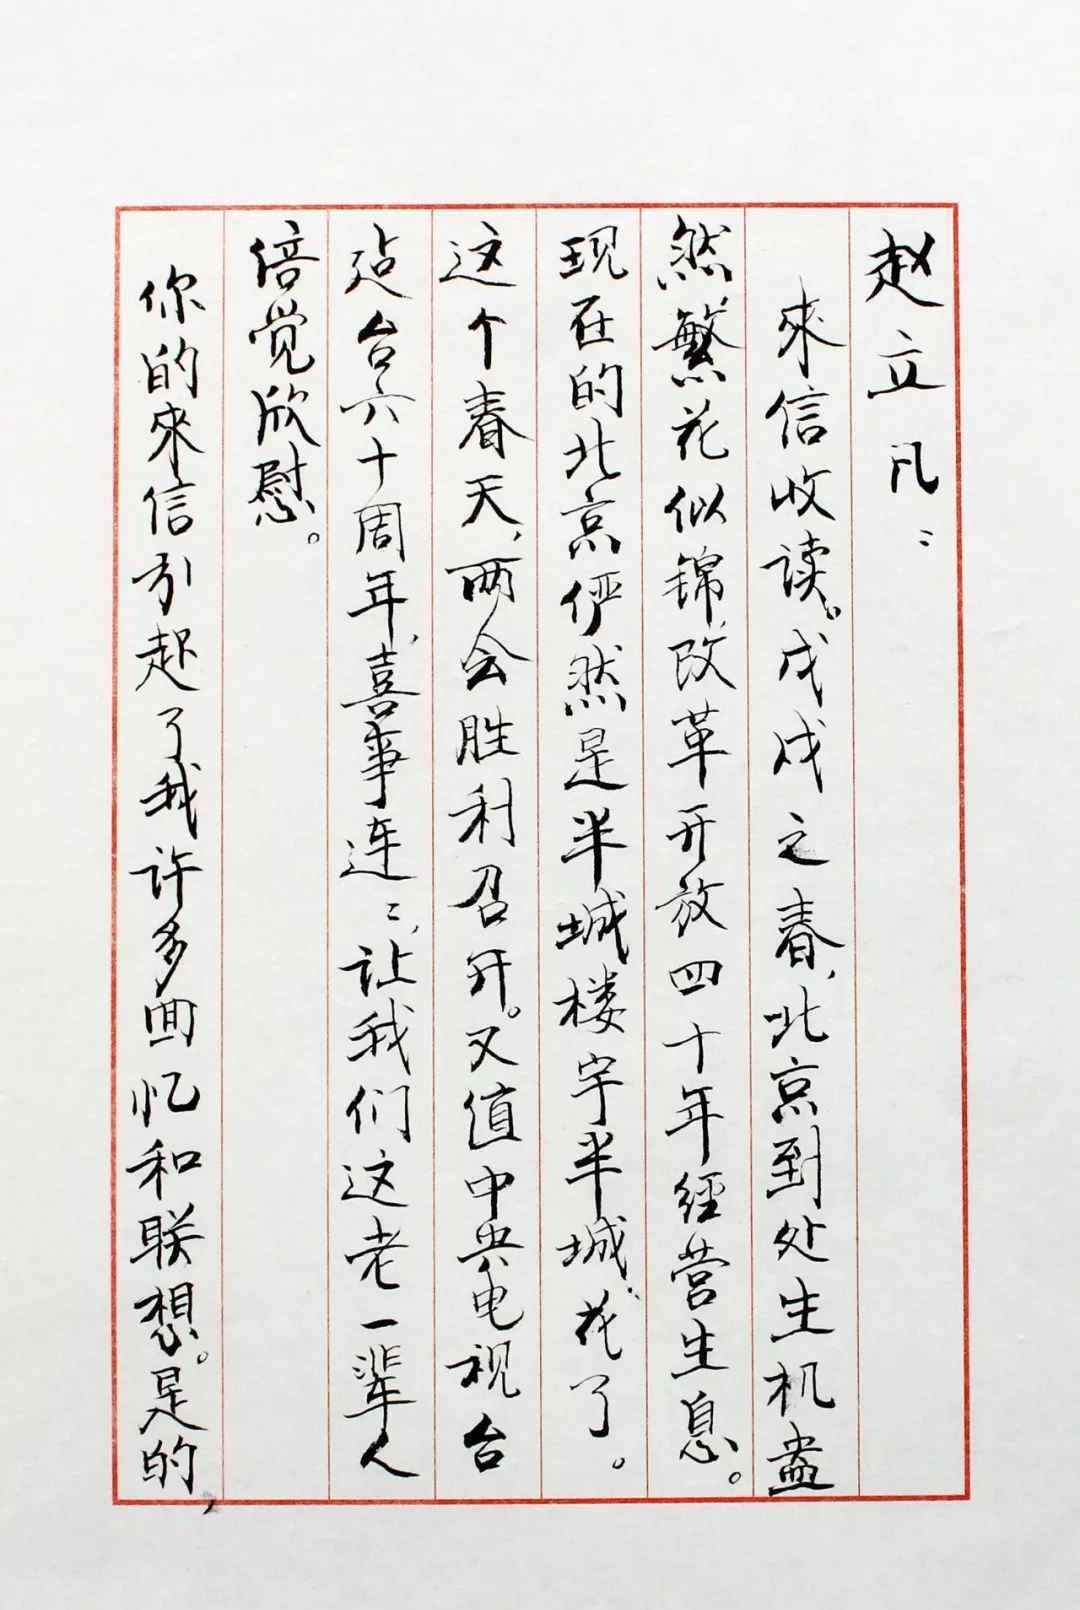 赵立凡：
來信收读。戊戌之春，北京到处生机盎
然，繁花似锦，改革开放四十年经营生息。
现在的北京俨然是半城楼宇半城花了。
这个春天，两会胜利召开。又值中央电视台
站台六十周年，喜事连〻，让我们这老一辈人
倍觉欣慰。
你的來信引起了我许多回忆和联想。是的，